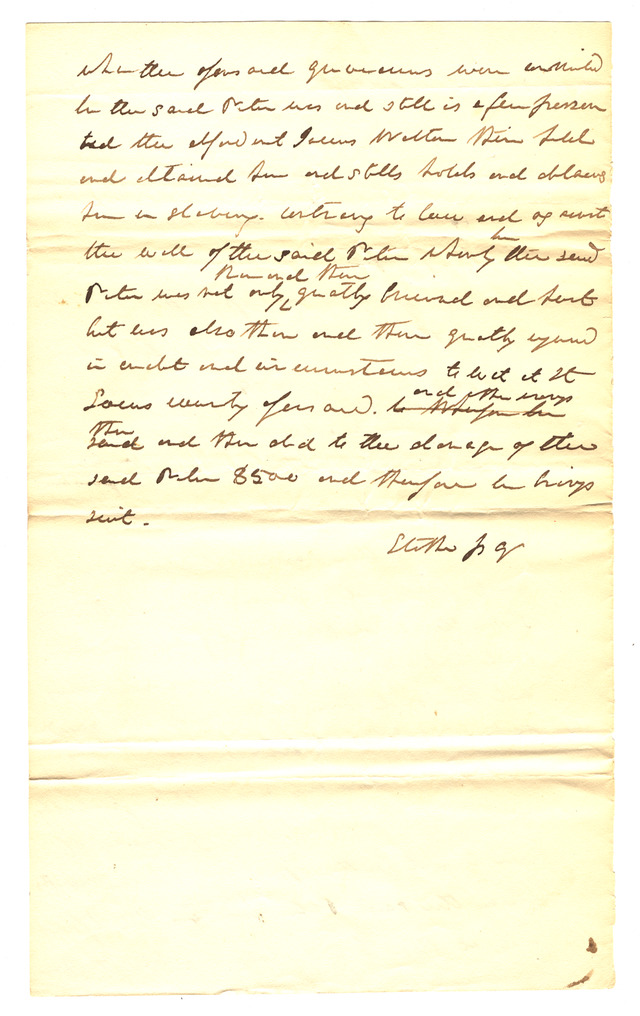 when the aforesaid grievances were committed
he the said Peter was and still is a free person
and the defendant James Walton then held
and detained him and still holds and detains
him in slavery. contrary to law and against
the will of the said Peter whereby he the said
Peter was not only then and there greatly bruised and hurt
but was also then and there greatly injured
in credit and circumstances to wit at St
Louis county aforesaid. and other wrongs
then
said and there did to the damage of the
said Peter $500 and therefore he brings
suit.
p q